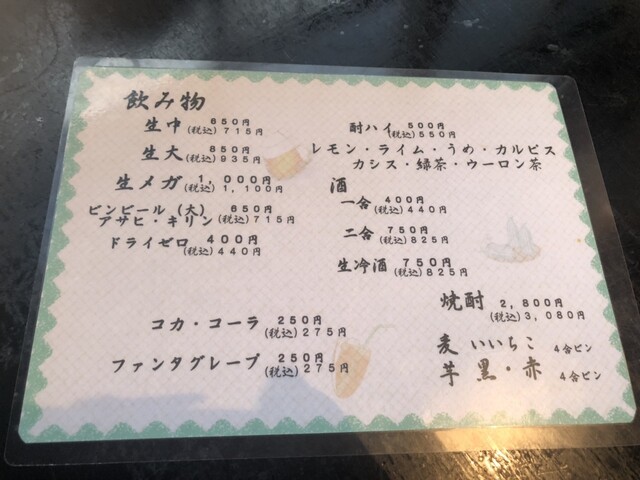 飲み物
生中 650円
(税込)715円
生大 850円
(税込)935円
生メガ 1,000円
(税込)1,100円
ビンビール(大) 650円
アサヒ・キリン(税込)715円
ドライゼロ 400円
(税込)440円
コカ・コーラ 250円
(税込)275円
ファンタグレープ 250円
(税込)275円
酎ハイ 500円
(税込)550円
レモン・ライム・うめ・カルピス
カシス・緑茶・ウーロン茶
酒
一合 400円
(税込)440円
二合 750円
(税込)825円
生冷酒 750円
(税込)825円
焼酎 2,800円
(税込)3,080円
麦 いいちこ 4合ビン
芋 黒・赤 4合ビン